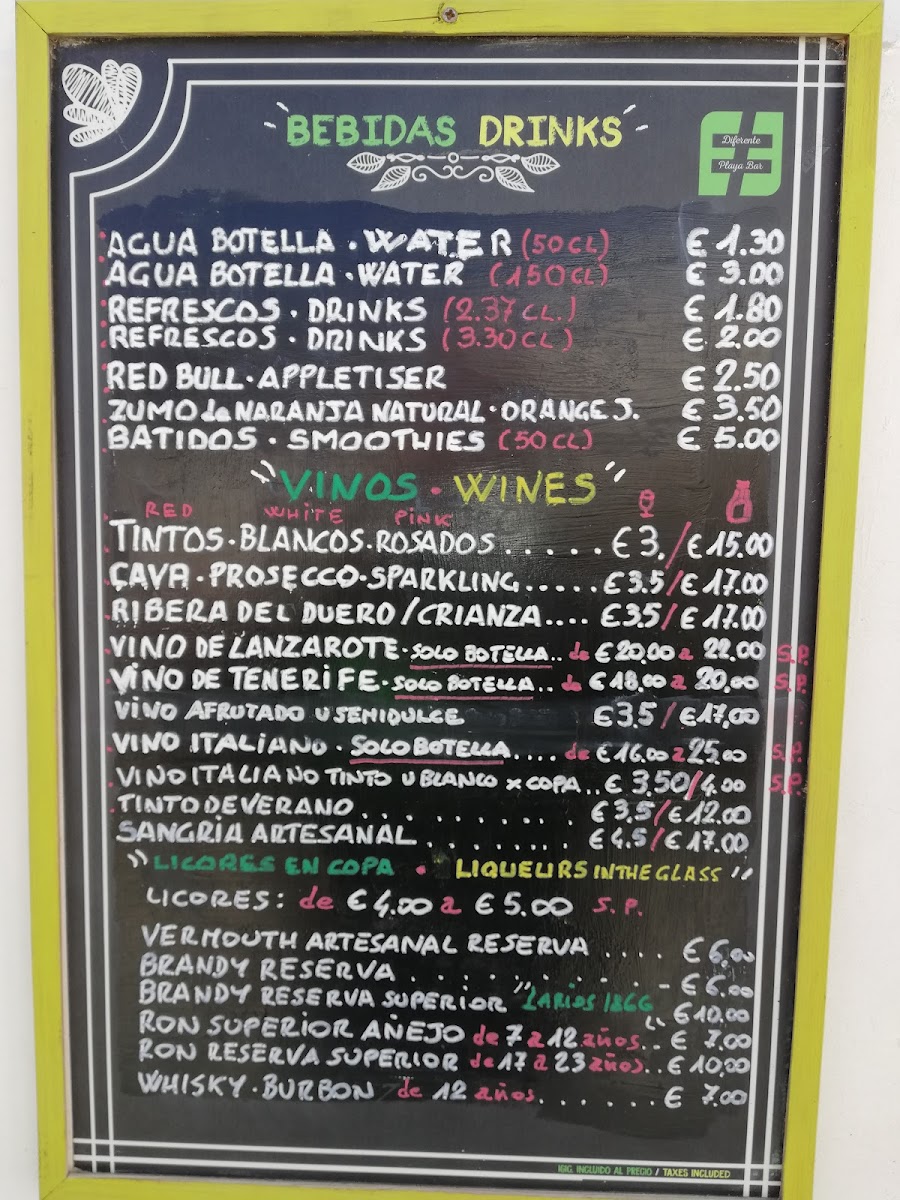 BEBIDAS DRINKS
Diferente
Playa Bar
AGUA BOTELLA . WATER (50CL) € 1.30
AGUA BOTELLA . WATER (150CL) € 3.00
REFRESCOS . DRINKS (2.37 CL.) € 1.80
REFRESCOS . DRINKS (3.30 CL) € 2.00
RED BULL . APPLETISER € 2.50
ZUMO de NARANJA NATURAL . ORANGE J. € 3.50
BATIDOS . SMOOTHIES (50CL) € 5.00
"VINOS . WINES"
RED WHITE PINK
TINTOS . BLANCOS . ROSADOS ..... € 3. / € 15.00
CAVA . PROSECCO . SPARKLING ..... € 3.5 / € 17.00
RIBERA DEL DUERO / CRIANZA .... € 3.5 / € 17.00
VINO DE LANZAROTE . SOLO BOTELLA .. de € 20.00 a 22.00 S.P.
VINO DE TENERIFE . SOLO BOTELLA .. de € 18.00 a 20,00 S.P.
VINO AFRUTADO U SEMIDULCE € 3.5 / € 17,00
VINO ITALIANO . SOLO BOTELLA ..... de € 16.00 a 25.00 S.P.
VINO ITALIANO TINTO U BLANCO x COPA .. € 3.50 / 4.00 S.P.
TINTO DE VERANO . . . . . . . . . € 3.5 / € 12.00
SANGRIA ARTESANAL . . . . . . . . € 4.5 / € 17.00
"LICORES EN COPA . LIQUEURS IN THE GLASS"
LICORES: de € 4.00 a € 5.00 S.P.
VERMOUTH ARTESANAL RESERVA .... € 6.00
BRANDY RESERVA . . . . . . . . . . € 6.00
BRANDY RESERVA SUPERIOR "LARIOS 1866" € 10.00
RON SUPERIOR AÑEJO de 7 a 12 años .. € 7.00
RON RESERVA SUPERIOR de 17 a 23 años .. € 10,00
WHISKY . BURBON de 12 años . . . . . . € 7.00
IGIC. INCLUIDO AL PRECIO / TAXES INCLUDED